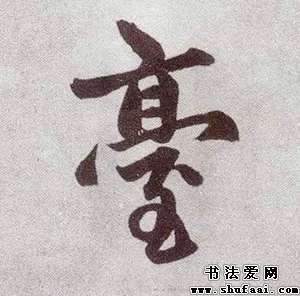 臺
书法爱网
www.shufaai.com